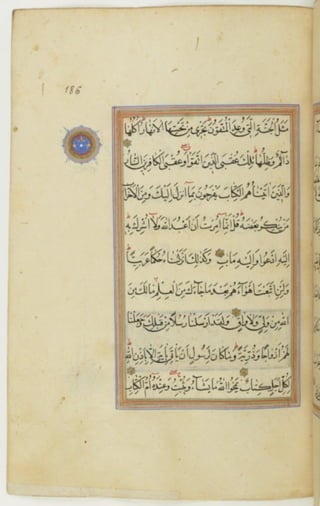 186
مَثَلُ الْجَنَّةِ الَّتِي وُعِدَ الْمُتَّقُونَ تَجْرِي مِنْ تَحْتِهَا الْأَنْهَارُ أُكُلُهَا
دَائِمٌ وَظِلُّهَا تِلْكَ عُقْبَى الَّذِينَ اتَّقَوْا وَعُقْبَى الْكَافِرِينَ النَّارُ
وَالَّذِينَ آتَيْنَاهُمُ الْكِتَابَ يَفْرَحُونَ بِمَا أُنْزِلَ إِلَيْكَ وَمِنَ الْأَحْزَابِ
مَنْ يُنْكِرُ بَعْضَهُ قُلْ إِنَّمَا أُمِرْتُ أَنْ أَعْبُدَ اللَّهَ وَلَا أُشْرِكَ بِهِ
إِلَيْهِ أَدْعُوا وَإِلَيْهِ مَآبِ وَكَذَلِكَ أَنْزَلْنَاهُ حُكْمًا عَرَبِيًّا
وَلَئِنِ اتَّبَعْتَ أَهْوَاءَهُمْ بَعْدَ مَا جَاءَكَ مِنَ الْعِلْمِ مَا لَكَ مِنَ
اللَّهِ مِنْ وَلِيٍّ وَلَا وَاقٍ وَلَقَدْ أَرْسَلْنَا رُسُلًا مِنْ قَبْلِكَ وَجَعَلْنَا
لَهُمْ أَزْوَاجًا وَذُرِّيَّةً وَمَا كَانَ لِرَسُولٍ أَنْ يَأْتِيَ بِآيَةٍ إِلَّا بِإِذْنِ اللَّهِ
لِكُلِّ أَجَلٍ كِتَابٌ يَمْحُوا اللَّهُ مَا يَشَاءُ وَيُثْبِتُ وَعِنْدَهُ أُمُّ الْكِتَابِ